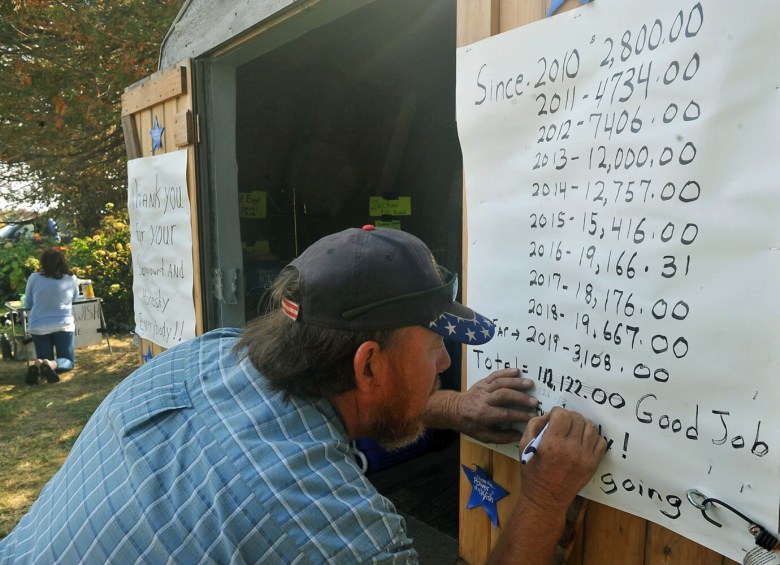 Thank you
For your
Support And
Honesty
Everybody!!
Since. 2010 $2,800.00
2011 - 4734.00
2012 - 7406.00
2013 - 12,000.00
2014 - 12,757.00
2015 - 15,416.00
2016 - 19,166.31
2017 - 18,176.00
2018 - 19,667.00
Far → 2019 - 3,108.00
Total = 112,122.00 Good Job
!
going